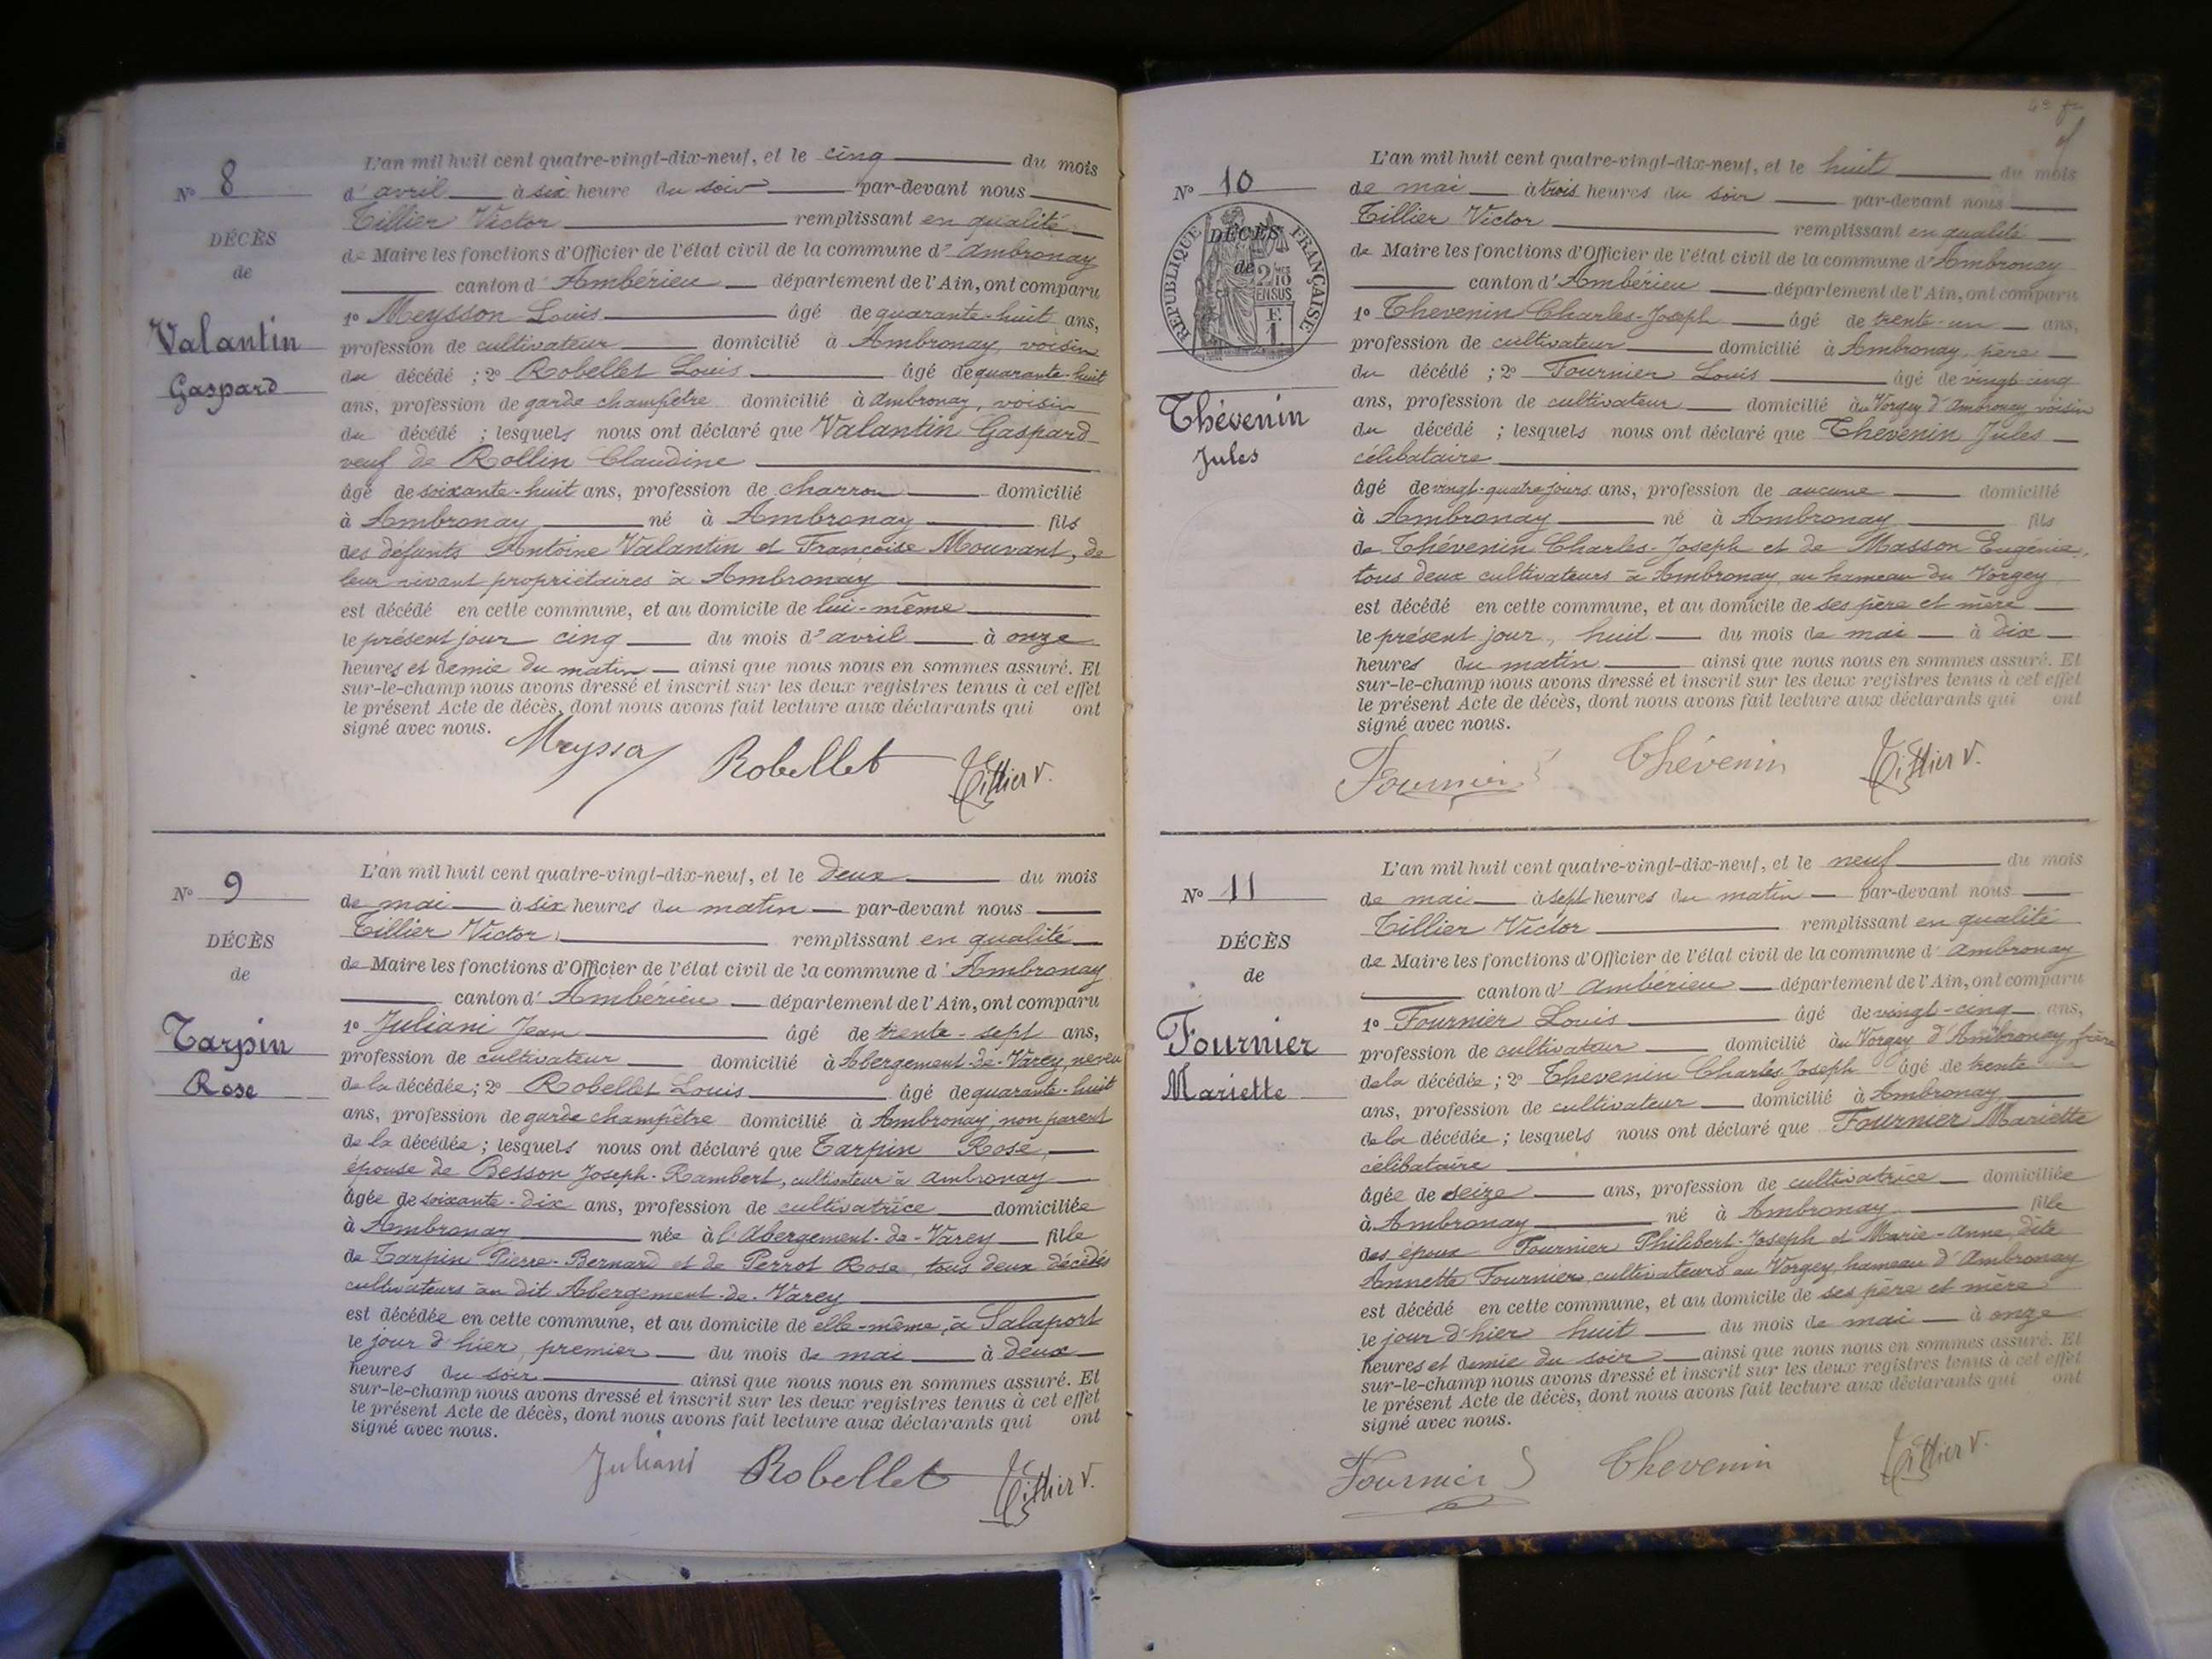 N° 8
DÉCÈS
de
Valantin
Gaspard
L'an mil huit cent quatre-vingt-dix-neuf, et le cinq du mois
d'avril à six heure du soir par-devant nous
Tillier Victor remplissant en qualité
de Maire les fonctions d'Officier de l'état civil de la commune d'Ambronay
canton d'Ambérieu département de l'Ain, ont comparu
1° Meysson Louis âgé de quarante-huit ans,
profession de cultivateur domicilié à Ambronay, voisin
du décédé ; 2° Robellet Louis âgé de quarante-huit
ans, profession de garde champêtre domicilié à Ambronay, voisin
du décédé ; lesquels nous ont déclaré que Valantin Gaspard
veuf de Rollin Claudine
âgé de soixante-huit ans, profession de charron domicilié
à Ambronay né à Ambronay fils
des défunts Antoine Valantin et Françoise Mouvant, de
leur vivant propriétaires à Ambronay
est décédé en cette commune, et au domicile de lui-même
le présent jour cinq du mois d'avril à onze
heures et demie du matin ainsi que nous nous en sommes assuré. Et
sur-le-champ nous avons dressé et inscrit sur les deux registres tenus à cet effet
le présent Acte de décès, dont nous avons fait lecture aux déclarants qui ont
signé avec nous.
Meysson Robellet Tillier V.
N° 9
DÉCÈS
de
Tarpin
Rose
L'an mil huit cent quatre-vingt-dix-neuf, et le deux du mois
de mai à six heures du matin par-devant nous
Tillier Victor remplissant en qualité
de Maire les fonctions d'Officier de l'état civil de la commune d'Ambronay
canton d'Ambérieu département de l'Ain, ont comparu
1° Juliani Jean âgé de trente-sept ans,
profession de cultivateur domicilié à Abergement-de-Varey, neveu
de la décédée ; 2° Robellet Louis âgé de quarante-huit
ans, profession de garde champêtre domicilié à Ambronay, non parent
de la décédée ; lesquels nous ont déclaré que Tarpin Rose,
épouse de Besson Joseph-Rambert, cultivateur à Ambronay
âgée de soixante-dix ans, profession de cultivatrice domiciliée
à Ambronay née à l'Abergement-de-Varey fille
de Tarpin Pierre-Bernard et de Perrot Rose, tous deux décédés
cultivateurs au dit Abergement-de-Varey
est décédée en cette commune, et au domicile de elle-même, à Salaport
le jour d'hier, premier du mois de mai à deux
heures du soir ainsi que nous nous en sommes assuré. Et
sur-le-champ nous avons dressé et inscrit sur les deux registres tenus à cet effet
le présent Acte de décès, dont nous avons fait lecture aux déclarants qui ont
signé avec nous.
Juliani Robellet Tillier V.
N° 10
RÉPUBLIQUE FRANÇAISE
DÉCÈS
de
2/10 EN SUS
F. 1
Thévenin
Jules
L'an mil huit cent quatre-vingt-dix-neuf, et le huit du mois
de mai à trois heures du soir par-devant nous
Tillier Victor remplissant en qualité
de Maire les fonctions d'Officier de l'état civil de la commune d'Ambronay
canton d'Ambérieu département de l'Ain, ont comparu
1° Thevenin Charles-Joseph âgé de trente-un ans,
profession de cultivateur domicilié à Ambronay, père
du décédé ; 2° Fournier Louis âgé de vingt-cinq
ans, profession de cultivateur domicilié au Vorgey d'Ambronay voisin
du décédé ; lesquels nous ont déclaré que Thevenin Jules
célibataire
âgé de vingt-quatre jours ans, profession de aucune domicilié
à Ambronay né à Ambronay fils
de Thévenin Charles-Joseph et de Masson Eugénie,
tous deux cultivateurs à Ambronay, au hameau du Vorgey
est décédé en cette commune, et au domicile de ses père et mère
le présent jour, huit du mois de mai à dix
heures du matin ainsi que nous nous en sommes assuré. Et
sur-le-champ nous avons dressé et inscrit sur les deux registres tenus à cet effet
le présent Acte de décès, dont nous avons fait lecture aux déclarants qui ont
signé avec nous.
Fournier Thévenin Tillier V.
N° 11
DÉCÈS
de
Fournier
Mariette
L'an mil huit cent quatre-vingt-dix-neuf, et le neuf du mois
de mai à sept heures du matin par-devant nous
Tillier Victor remplissant en qualité
de Maire les fonctions d'Officier de l'état civil de la commune d'Ambronay
canton d'Ambérieu département de l'Ain, ont comparu
1° Fournier Louis âgé de vingt-cinq ans,
profession de cultivateur domicilié au Vorgey d'Ambronay frère
de la décédée ; 2° Thevenin Charles Joseph âgé de trente
ans, profession de cultivateur domicilié à Ambronay
de la décédée ; lesquels nous ont déclaré que Fournier Mariette
célibataire
âgée de seize ans, profession de cultivatrice domiciliée
à Ambronay né à Ambronay fille
des époux Fournier Philibert-Joseph et Marie-Anne, dite
Annette Fournier, cultivateurs au Vorgey hameau d'Ambronay
est décédé en cette commune, et au domicile de ses père et mère
le jour d'hier huit du mois de mai à onze
heures et demie du soir ainsi que nous nous en sommes assuré. Et
sur-le-champ nous avons dressé et inscrit sur les deux registres tenus à cet effet
le présent Acte de décès, dont nous avons fait lecture aux déclarants qui ont
signé avec nous.
Fournier Thevenin Tillier V.